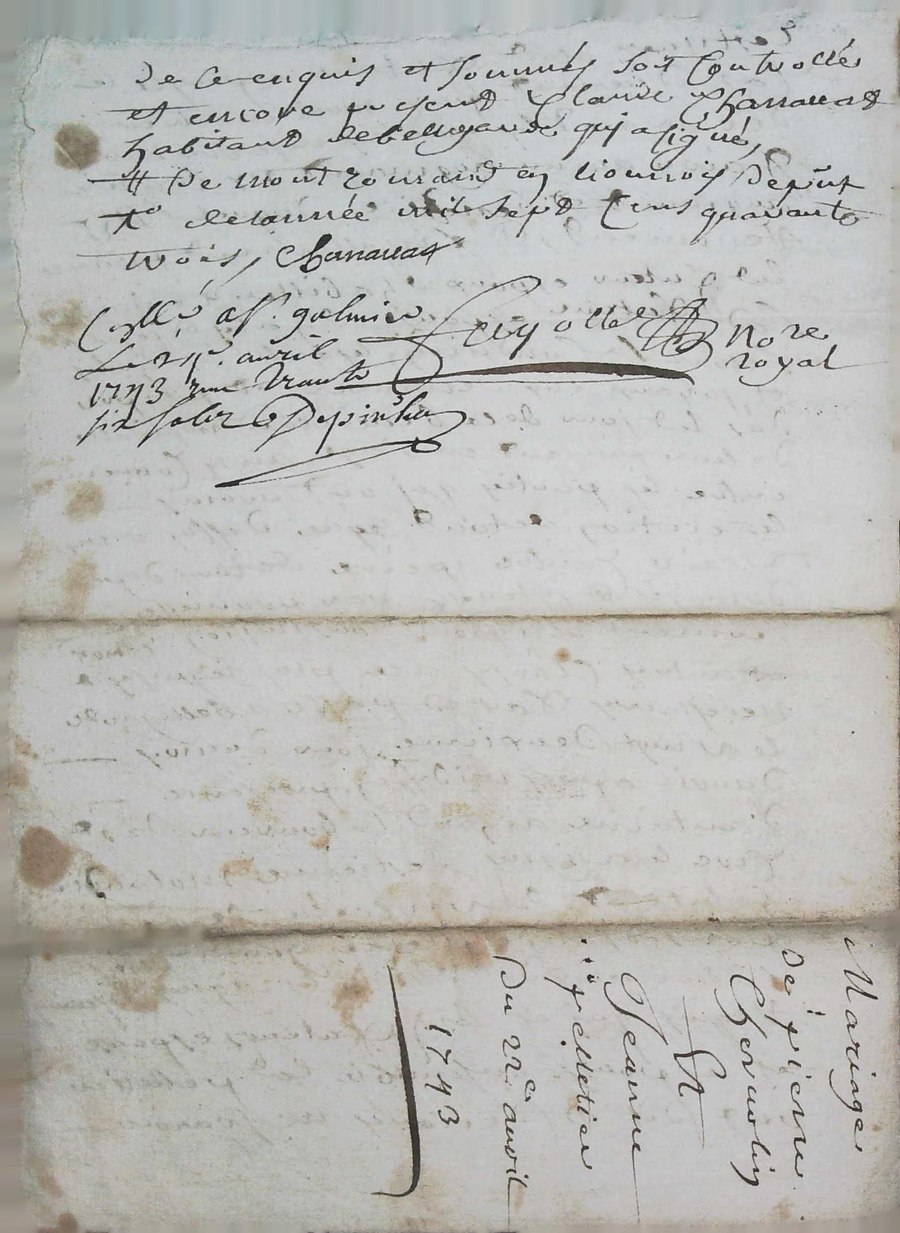 de ce enquis et sommés soit Controllé
et encore present Claude Charrauat
habitant de bellegarde qui a signé,
# De montromand en lionnois, depuis
de lannée mil sept Cens quarante
trois, Charrauat
Cllé a St. galmier
Le avril
1743 Reçu trente
six sols Depinha
Nore
royal
Mariage
De pierre
Et
Jeanne
pessetier
Du 22e. avril
1743